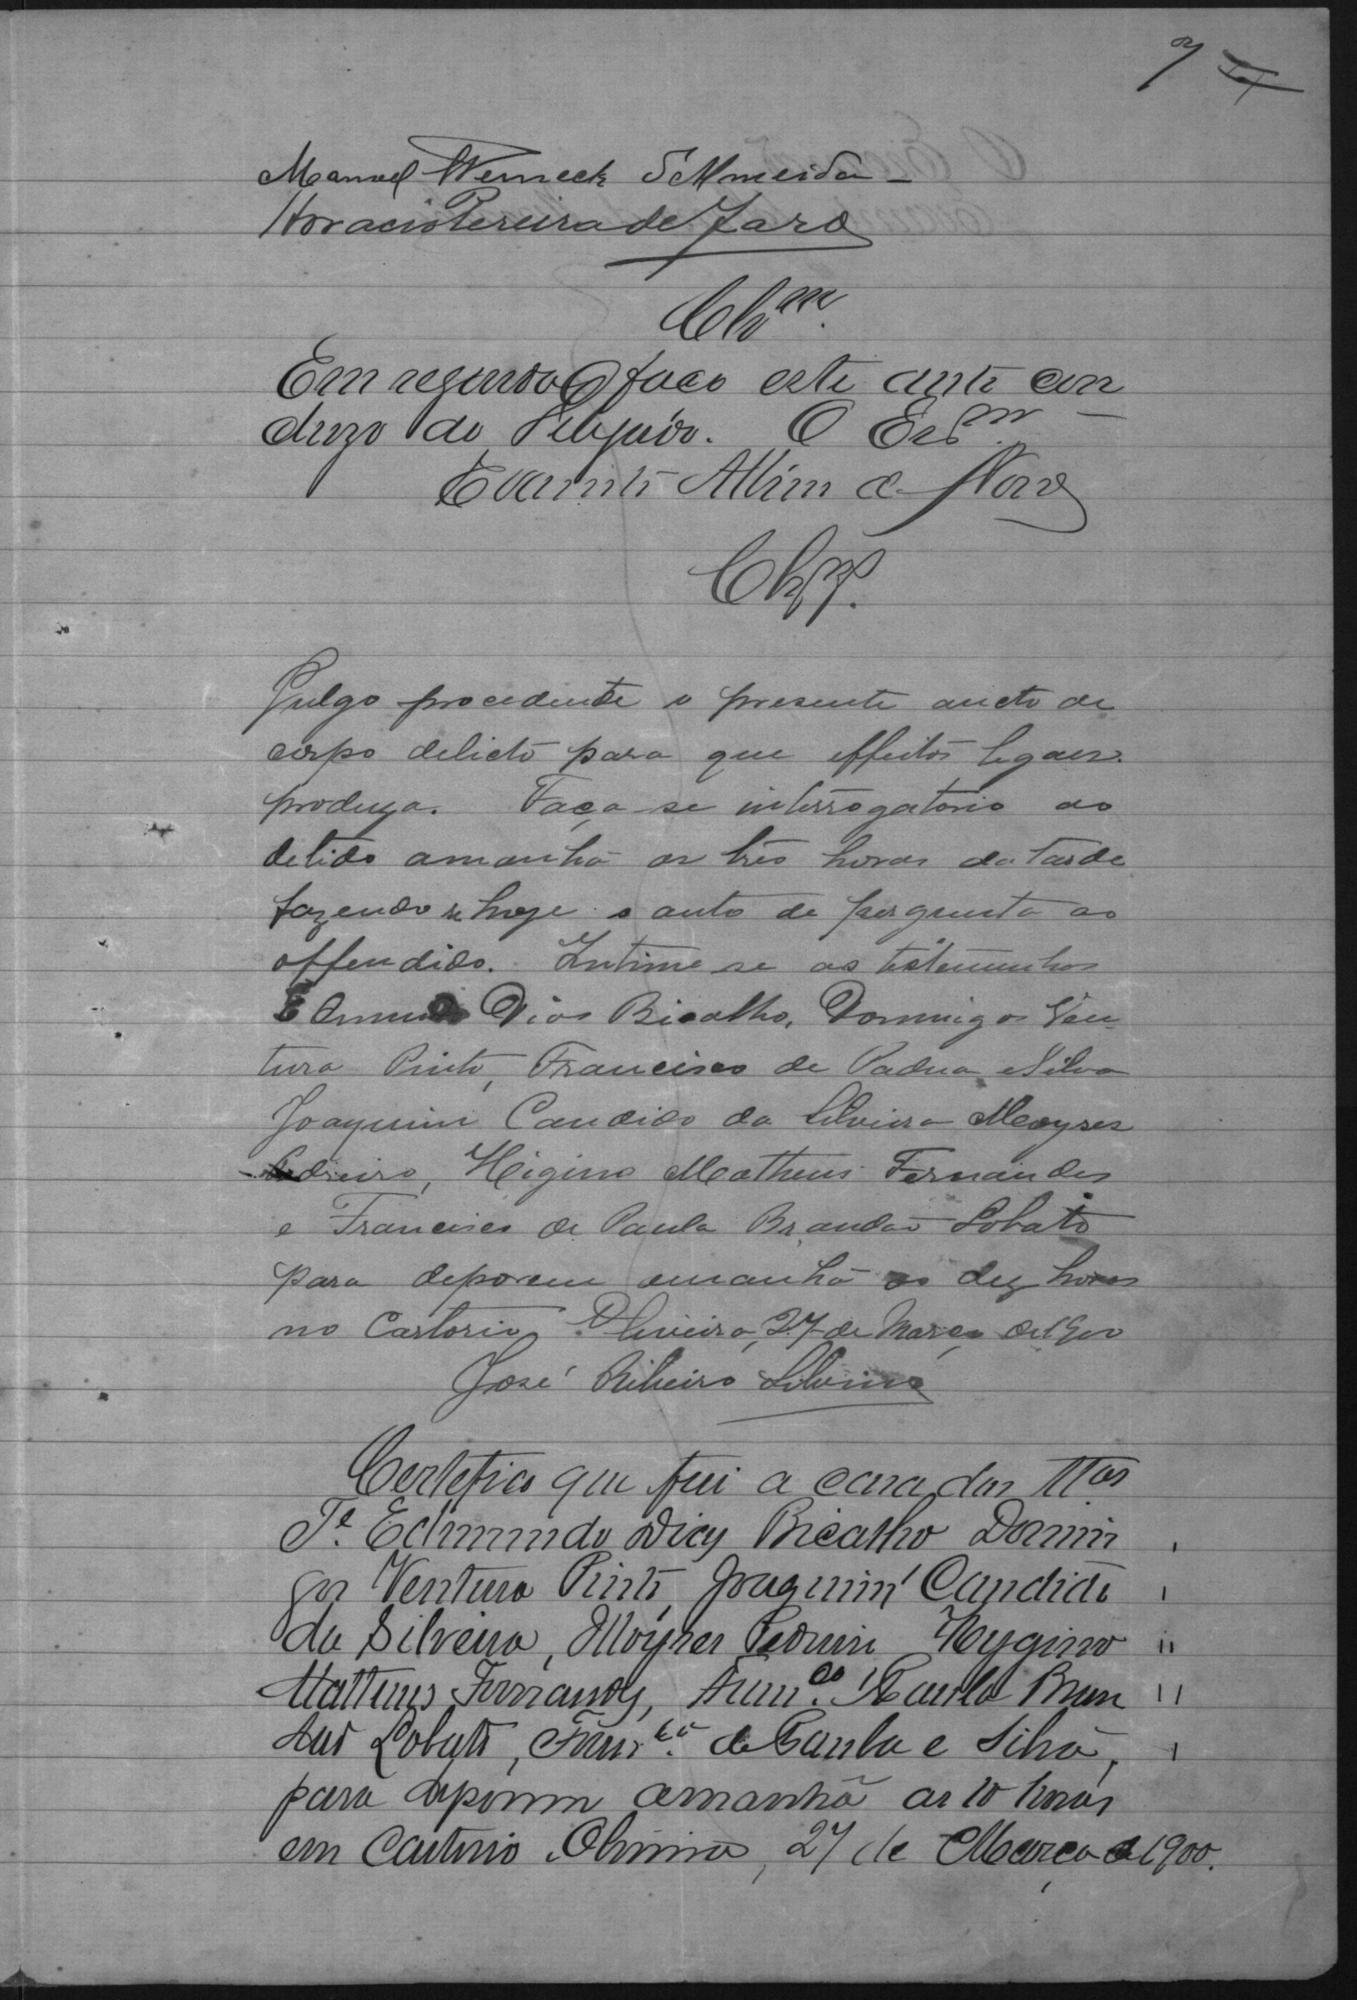 7
Manoel Werneck d'Almeida
Horacio Pereira de Faro
Clsm.
Em seguida faço este auto con
cluzo do Delegado. O Escm.
Clzo.
Julgo procedente o presente aucto de
corpo delicto para que effeitos legaes
produza. Faça-se interrogatorio ao
detido amanhã as três horas da tarde
fazendo se hoje o auto de pergunta ao
offendido. Intime se as testemunhas
Edmundo Dias Bicalho, Domingos Ven-
tura Pinto, Francisco de Padua e Silva
Joaquim Candido da Silveira Moyses
Pedreiro, Higino Matheus Fernandes
e Francisco de Paula Brandão Lobato
para deporem amanhã as dez horas
no Cartorio. Oliveira, 27 de Março de 1900
José Ribeiro Silvino
Certefico que fui a casa das ttas
Te. Edmundo Dias Bicalho Domin
gos Ventura Pinto, Joaquim Candido
da Silveira, Moyses Pedreiro Hygino
Mattheus Fernandes, Franco. Paula Bran
dão Lobato, Franco. de Paula e Silva,
para deporem amanhã as 10 horas
em Cartorio Oliveira, 27 de Março de 1900.